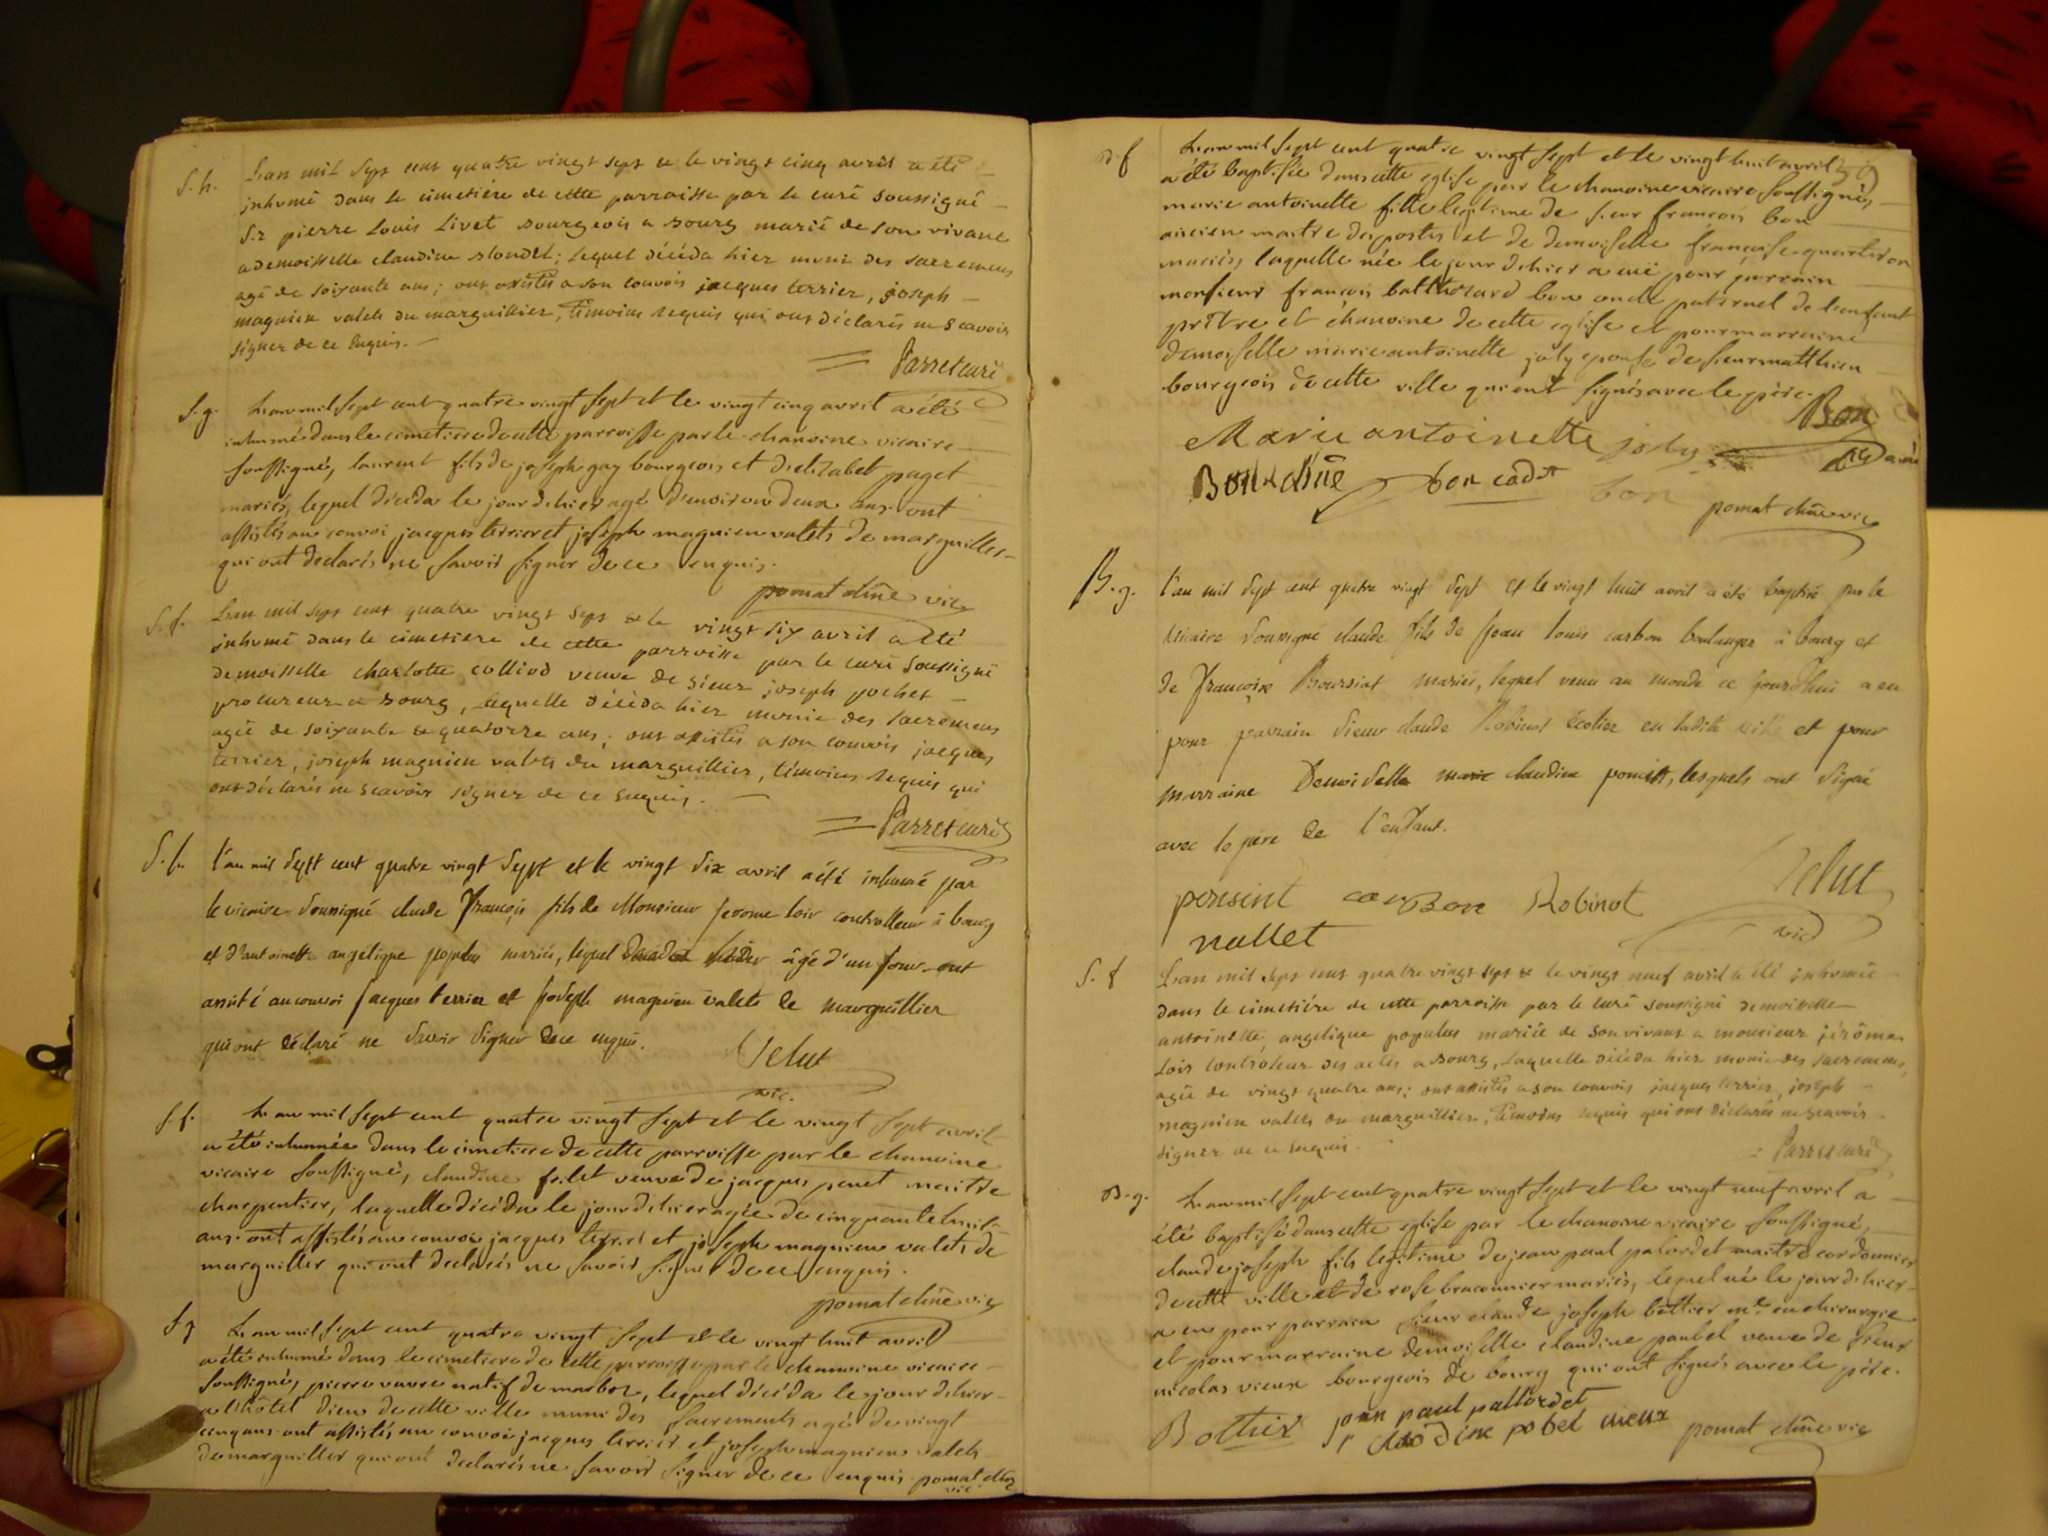 S. h.
L'an mil sept cent quatre vingt sept et le vingt cinq avril a été
inhumé dans le cimetiere de cette parroisse par le curé soussigné
S.r pierre Louis Livet bourgeois a bourg marié de son vivant
a demoisselle claudine blondel; lequel décéda hier muni des sacremens
agé de soixante ans; ont assistés a son convois jacques terrier, joseph
magnien valets du marguillier, témoins requis qui ont déclarés ne scavoir
signer de ce enquis.
Parret curé
S. g.
L'an mil sept cent quatre vingt sept et le vingt cinq avril a été
inhumé dans le cimetiere de cette parroisse par le chanoine vicaire
soussigné, laurent fils de joseph gay bourgeois et d'elizabet puget
mariés, lequel décéda le jour d'hier agé d'environ deux ans. ont
assistés au convoi jacques terrier et joseph magnien valets de marguiller
qui ont declarés ne savoir signer de ce enquis.
pomat chne vic
S. f.
L'an mil sept cent quatre vingt sept et le vingt six avril a été
inhumé dans le cimetiere de cette parroisse par le curé soussigné
demoisselle charlotte colliod veuve de sieur joseph pochet
procureur a bourg, laquelle décéda hier munie des sacremens
agée de soixante et quatorze ans; ont assistés a son convois jacques
terrier, joseph magnien valets du marguillier, témoins requis qui
ont déclarés ne scavoir signer de ce enquis.
Parret curé
S. f.
l'an mil sept cent quatre vingt sept et le vingt six avril a été inhumé par
le vicaire soussigné claude françois fils de Monsieur jerome loir controlleur à bourg
et d'antoinette angelique populus mariés, lequel âgé d'un jour. ont
assisté au convoi jacques terrier et joseph magnien valets de marguillier
qui ont déclaré ne savoir signer de ce enquis.
Velut
vic.
S. f.
L'an mil sept cent quatre vingt sept et le vingt sept avril
a été inhumée dans le cimetiere de cette parroisse par le chanoine
vicaire soussigné, claudine folet veuve de jacques penet maitre
charpentier, laquelle décéda le jour d'hier agée de cinquante huit
ans. ont assistés au convoi jacques terrier et joseph magnien valets de
marguiller qui ont declarés ne savoir signer de ce enquis.
pomat chne vic
S. g
L'an mil sept cent quatre vingt sept et le vingt huit avril
a été inhumé dans le cimetiere de cette parroisse par le chanoine vicaire
soussigné, pierre vavre natif de marboz, lequel décéda le jour d'hier
a l'hôtel dieu de cette ville muni des sacrements agé de vingt
cinq ans. ont assistés au convoi jacques terrier et joseph magnien valets
de marguiller qui ont declarés ne savoir signer de ce enquis. pomat chne
vic
B. f
L'an mil sept cent quatre vingt sept et le vingt huit avril
a été baptisée dans cette eglise par le chanoine vicaire soussigné,
marie antoinette fille legitime de sieur françois bon
ancien maitre des postes et de demoiselle françoise quarteron
mariés, laquelle née le jour d'hier a eue pour parrain
monsieur françois balthazard bon oncle paternel de l'enfant
prêtre et chanoine de cette eglise et pour marraine
demoiselle marie antoinette joly epouse de sieur matthieu
bourgeois de cette ville qui ont signés avec le père.
Bon
Marie antoinette joly
Bon chne bon cadet bon
pomat chne vic
B. g.
l'an mil sept cent quatre vingt sept et le vingt huit avril a été baptisé par le
vicaire soussigné claude fils de jean louis carbon boulanger à bourg et
de françoise Boursiat mariés, lequel venu au monde ce jourd'hui a eu
pour parrain sieur claude Robinot écolier en ladite ville et pour
marraine Demoiselle marie claudine, lesquels ont signé
avec le père de l'enfant.
carbon Robinot
Velut
nallet
vic
S. f
L'an mil sept cent quatre vingt sept et le vingt neuf avril a été inhumée
dans le cimetiére de cette parroisse par le curé soussigné demoisselle
antoinette angelique populus mariée de son vivant a monsieur jérôme
Loir controleur des actes a bourg, laquelle décéda hier munie des sacremens,
agée de vingt quatre ans; ont assistés a son convois jacques terrier, joseph
magnien valets du marguillier, témoins requis qui ont déclarés ne scavoir
signer de ce enquis.
Parret curé
B. g.
L'an mil sept cent quatre vingt sept et le vingt neuf avril a
été baptisé dans cette eglise par le chanoine vicaire soussigné,
claude joseph fils legitime de jean paul palordet maitre cordonnier
de cette ville et de rose braconnier mariés, lequel né le jour d'hier
a eu pour parrain sieur claude joseph bottier me. en chirurgie
et pour marraine demoiselle claudine paubel veuve de sieur
nicolas vieux bourgeois de bourg qui ont signés avec le père.
jean paul pallordet
Bottier
claudine pobel vieux
pomat chne vic